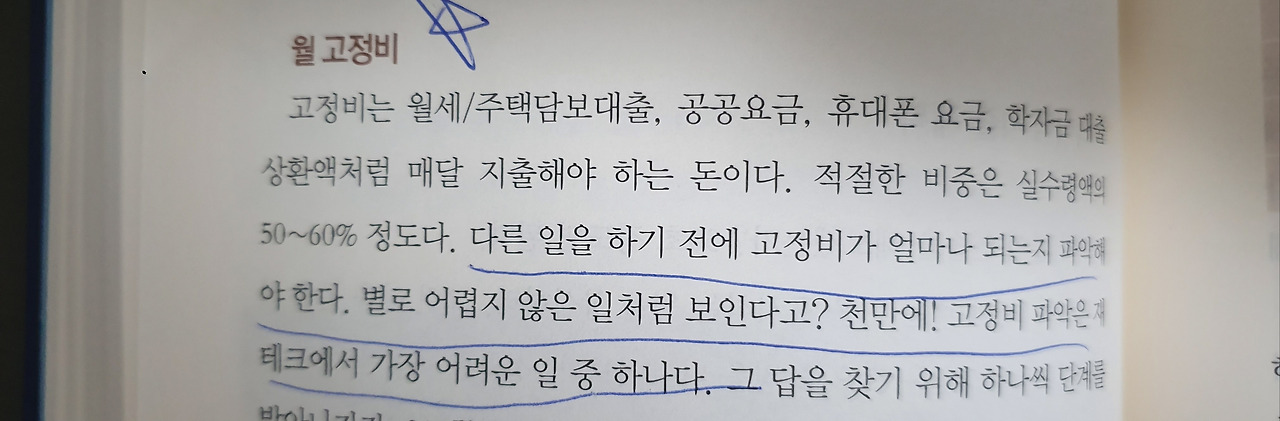 월 고정비
고정비는 월세/주택담보대출, 공공요금, 휴대폰 요금, 학자금 대출
상환액처럼 매달 지출해야 하는 돈이다. 적절한 비중은 실수령액의
50~60% 정도다. 다른 일을 하기 전에 고정비가 얼마나 되는지 파악해
야 한다. 별로 어렵지 않은 일처럼 보인다고? 천만에! 고정비 파악은 재
테크에서 가장 어려운 일 중 하나다. 그 답을 찾기 위해 하나씩 단계를